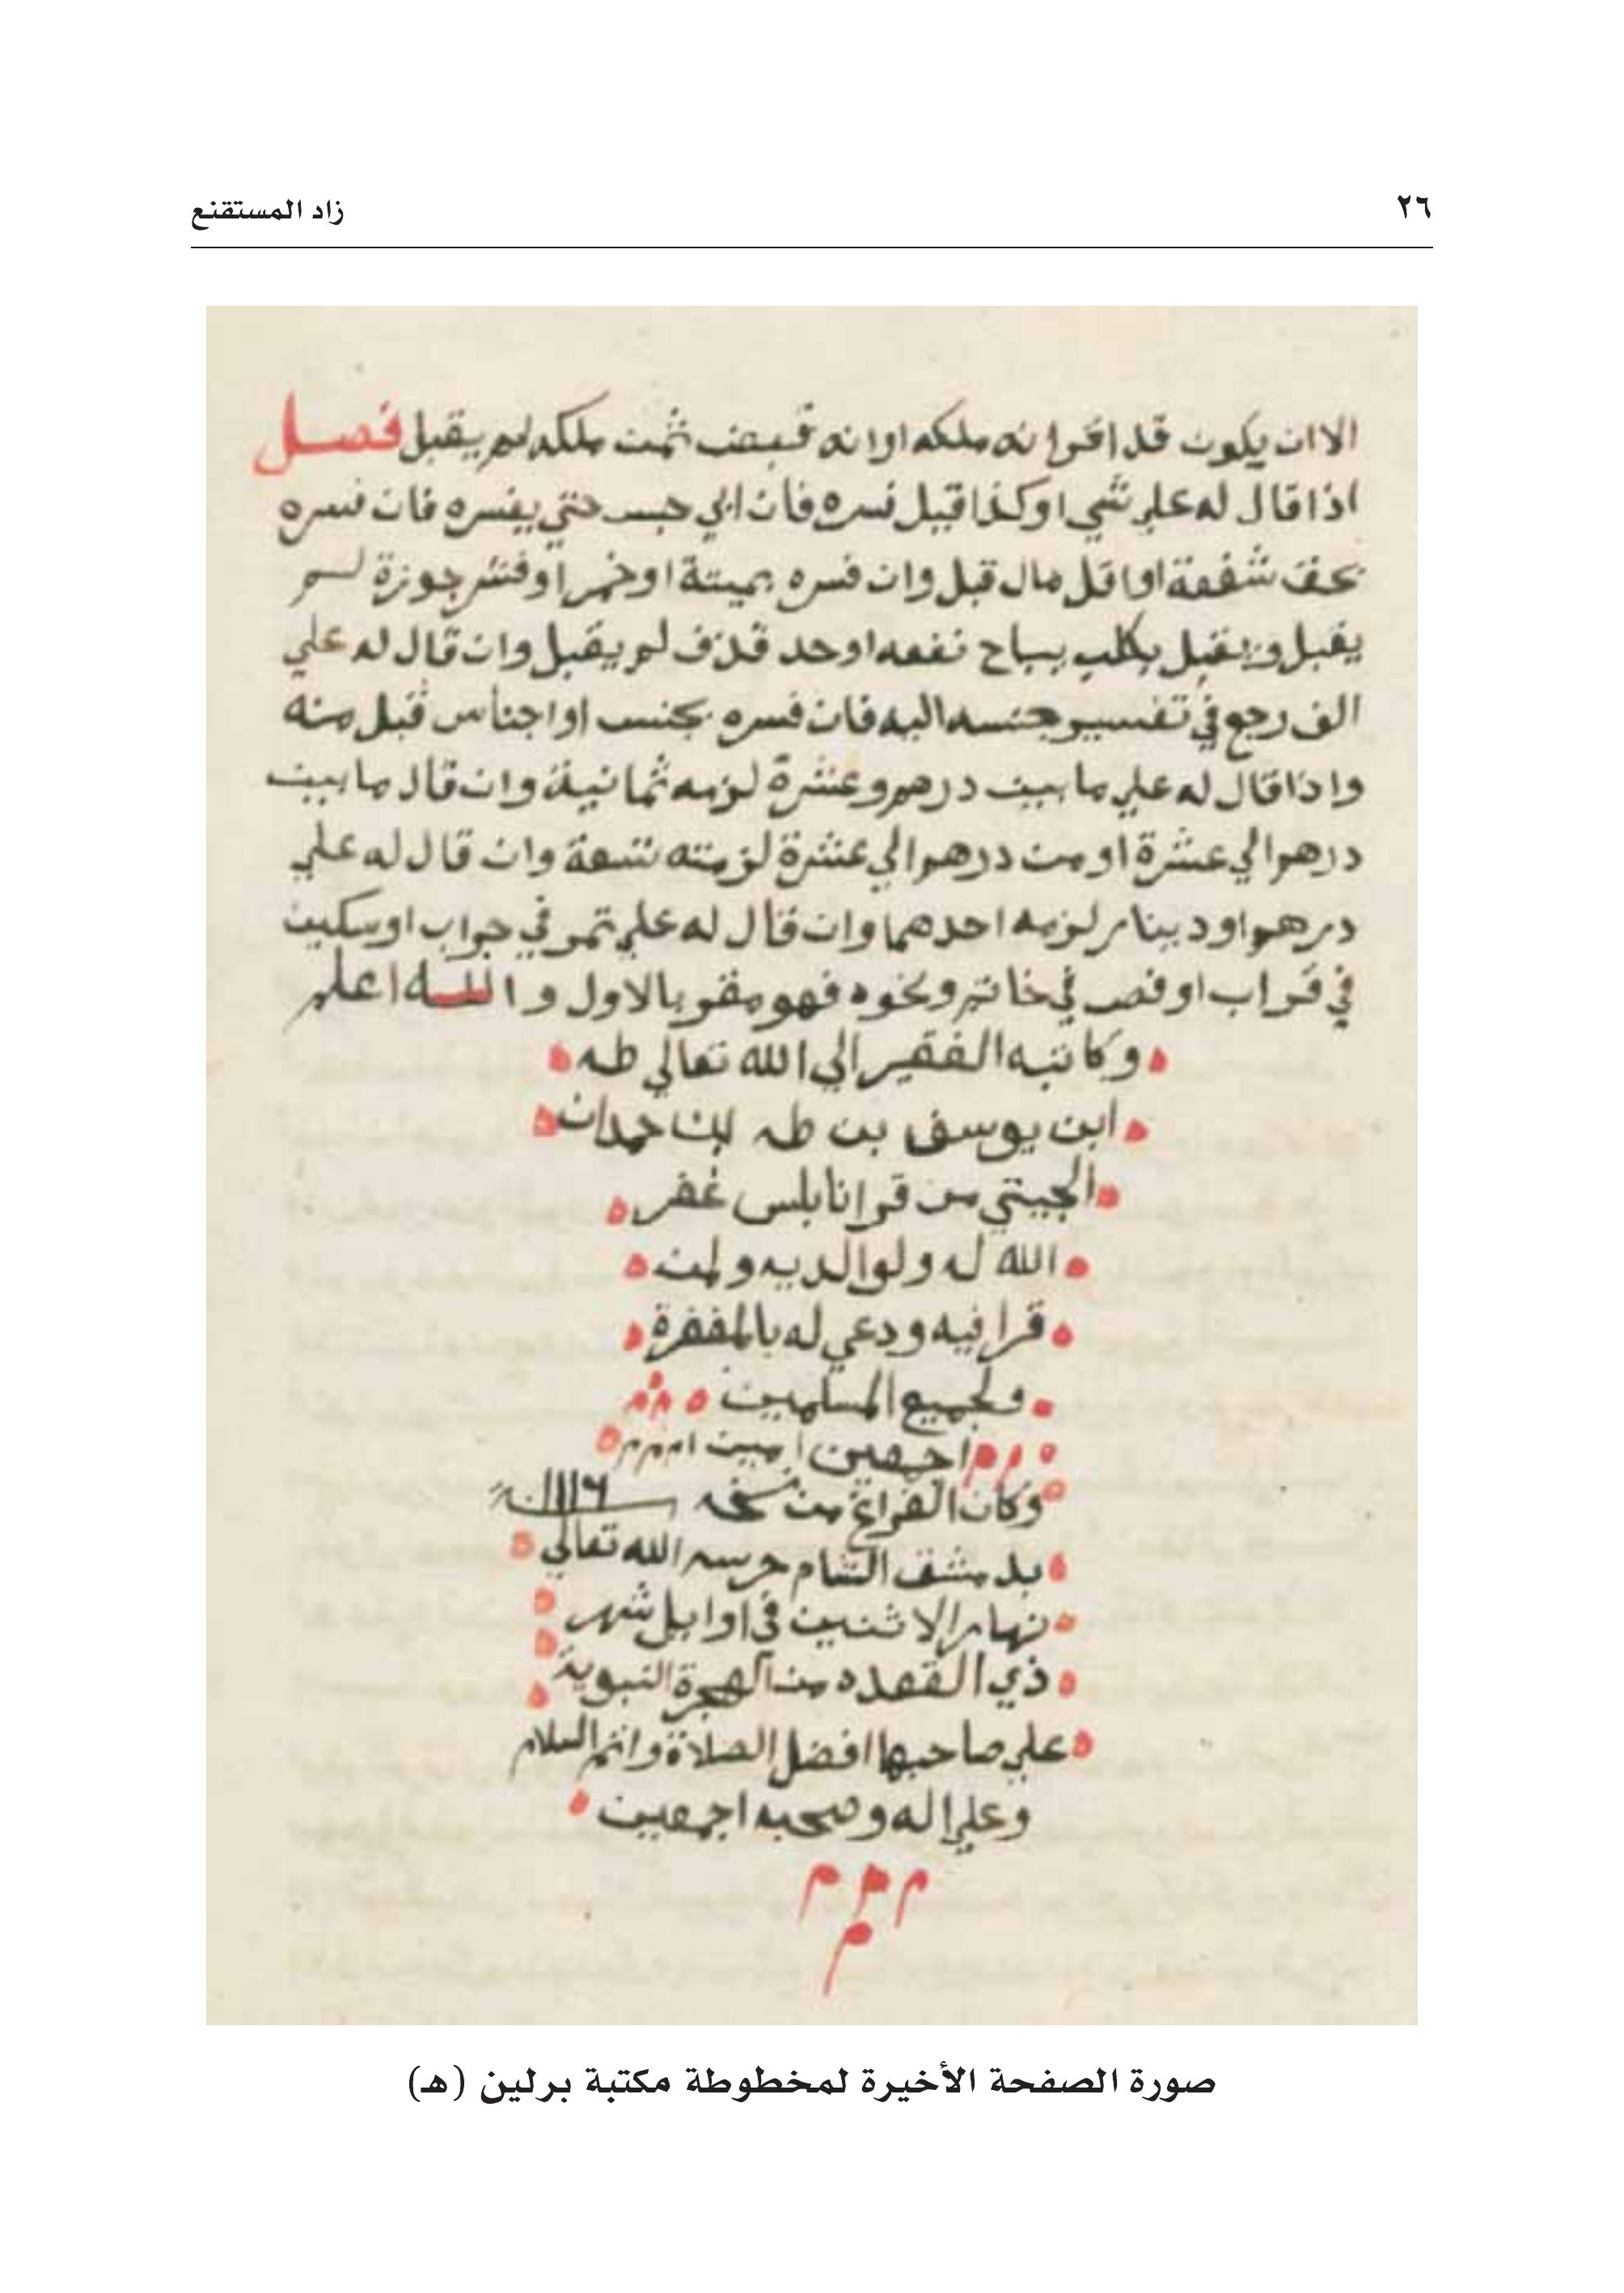 ٢٦
زاد المستقنع
الا ان يكون قد اقر انه ملكه او انه قبض ثمن ملكه لم يقبل فصل
اذا قال له علي شي او كذا قيل فسره فان ابي حبس حتي يفسره فان فسره
بحق شفعة او اقل مال قبل وان فسره بميتة او خمر او قشر جوزة لم
يقبل ويقبل بكلب يباح نفعه او حد قذف لم يقبل وان قال له علي
الف رجع في تفسير جنسه اليه فان فسره بجنس او اجناس قبل منه
واذا قال له علي ما بين درهم وعشرة لزمه ثمانية وان قال ما بين
درهم الي عشرة او من درهم الي عشرة لزمته تسعة وان قال له علي
درهم او دينار لزمه احدهما وان قال له علي تمر في جراب او سكين
في قراب او فص في خاتم ونحوه فهو مقر بالاول والله اعلم
وكاتبه الفقير الي الله تعالي طه
ابن يوسف بن طه ابن حمدان
الجيتي من قرا نابلس غفر
الله له ولوالديه ولمن
قرا فيه ودعي له بالمغفرة
ولجميع المسلمين
اجمعين امين
وكان الفراغ من نسخه ١١١٦
بدمشق الشام حرسه الله تعالي
نهار الاثنين في اوايل شهر
ذي القعده من الهجرة النبوية
علي صاحبها افضل الصلاة واتم السلام
وعلي اله وصحبه اجمعين
م م م
م
صورة الصفحة الأخيرة لمخطوطة مكتبة برلين (هـ)